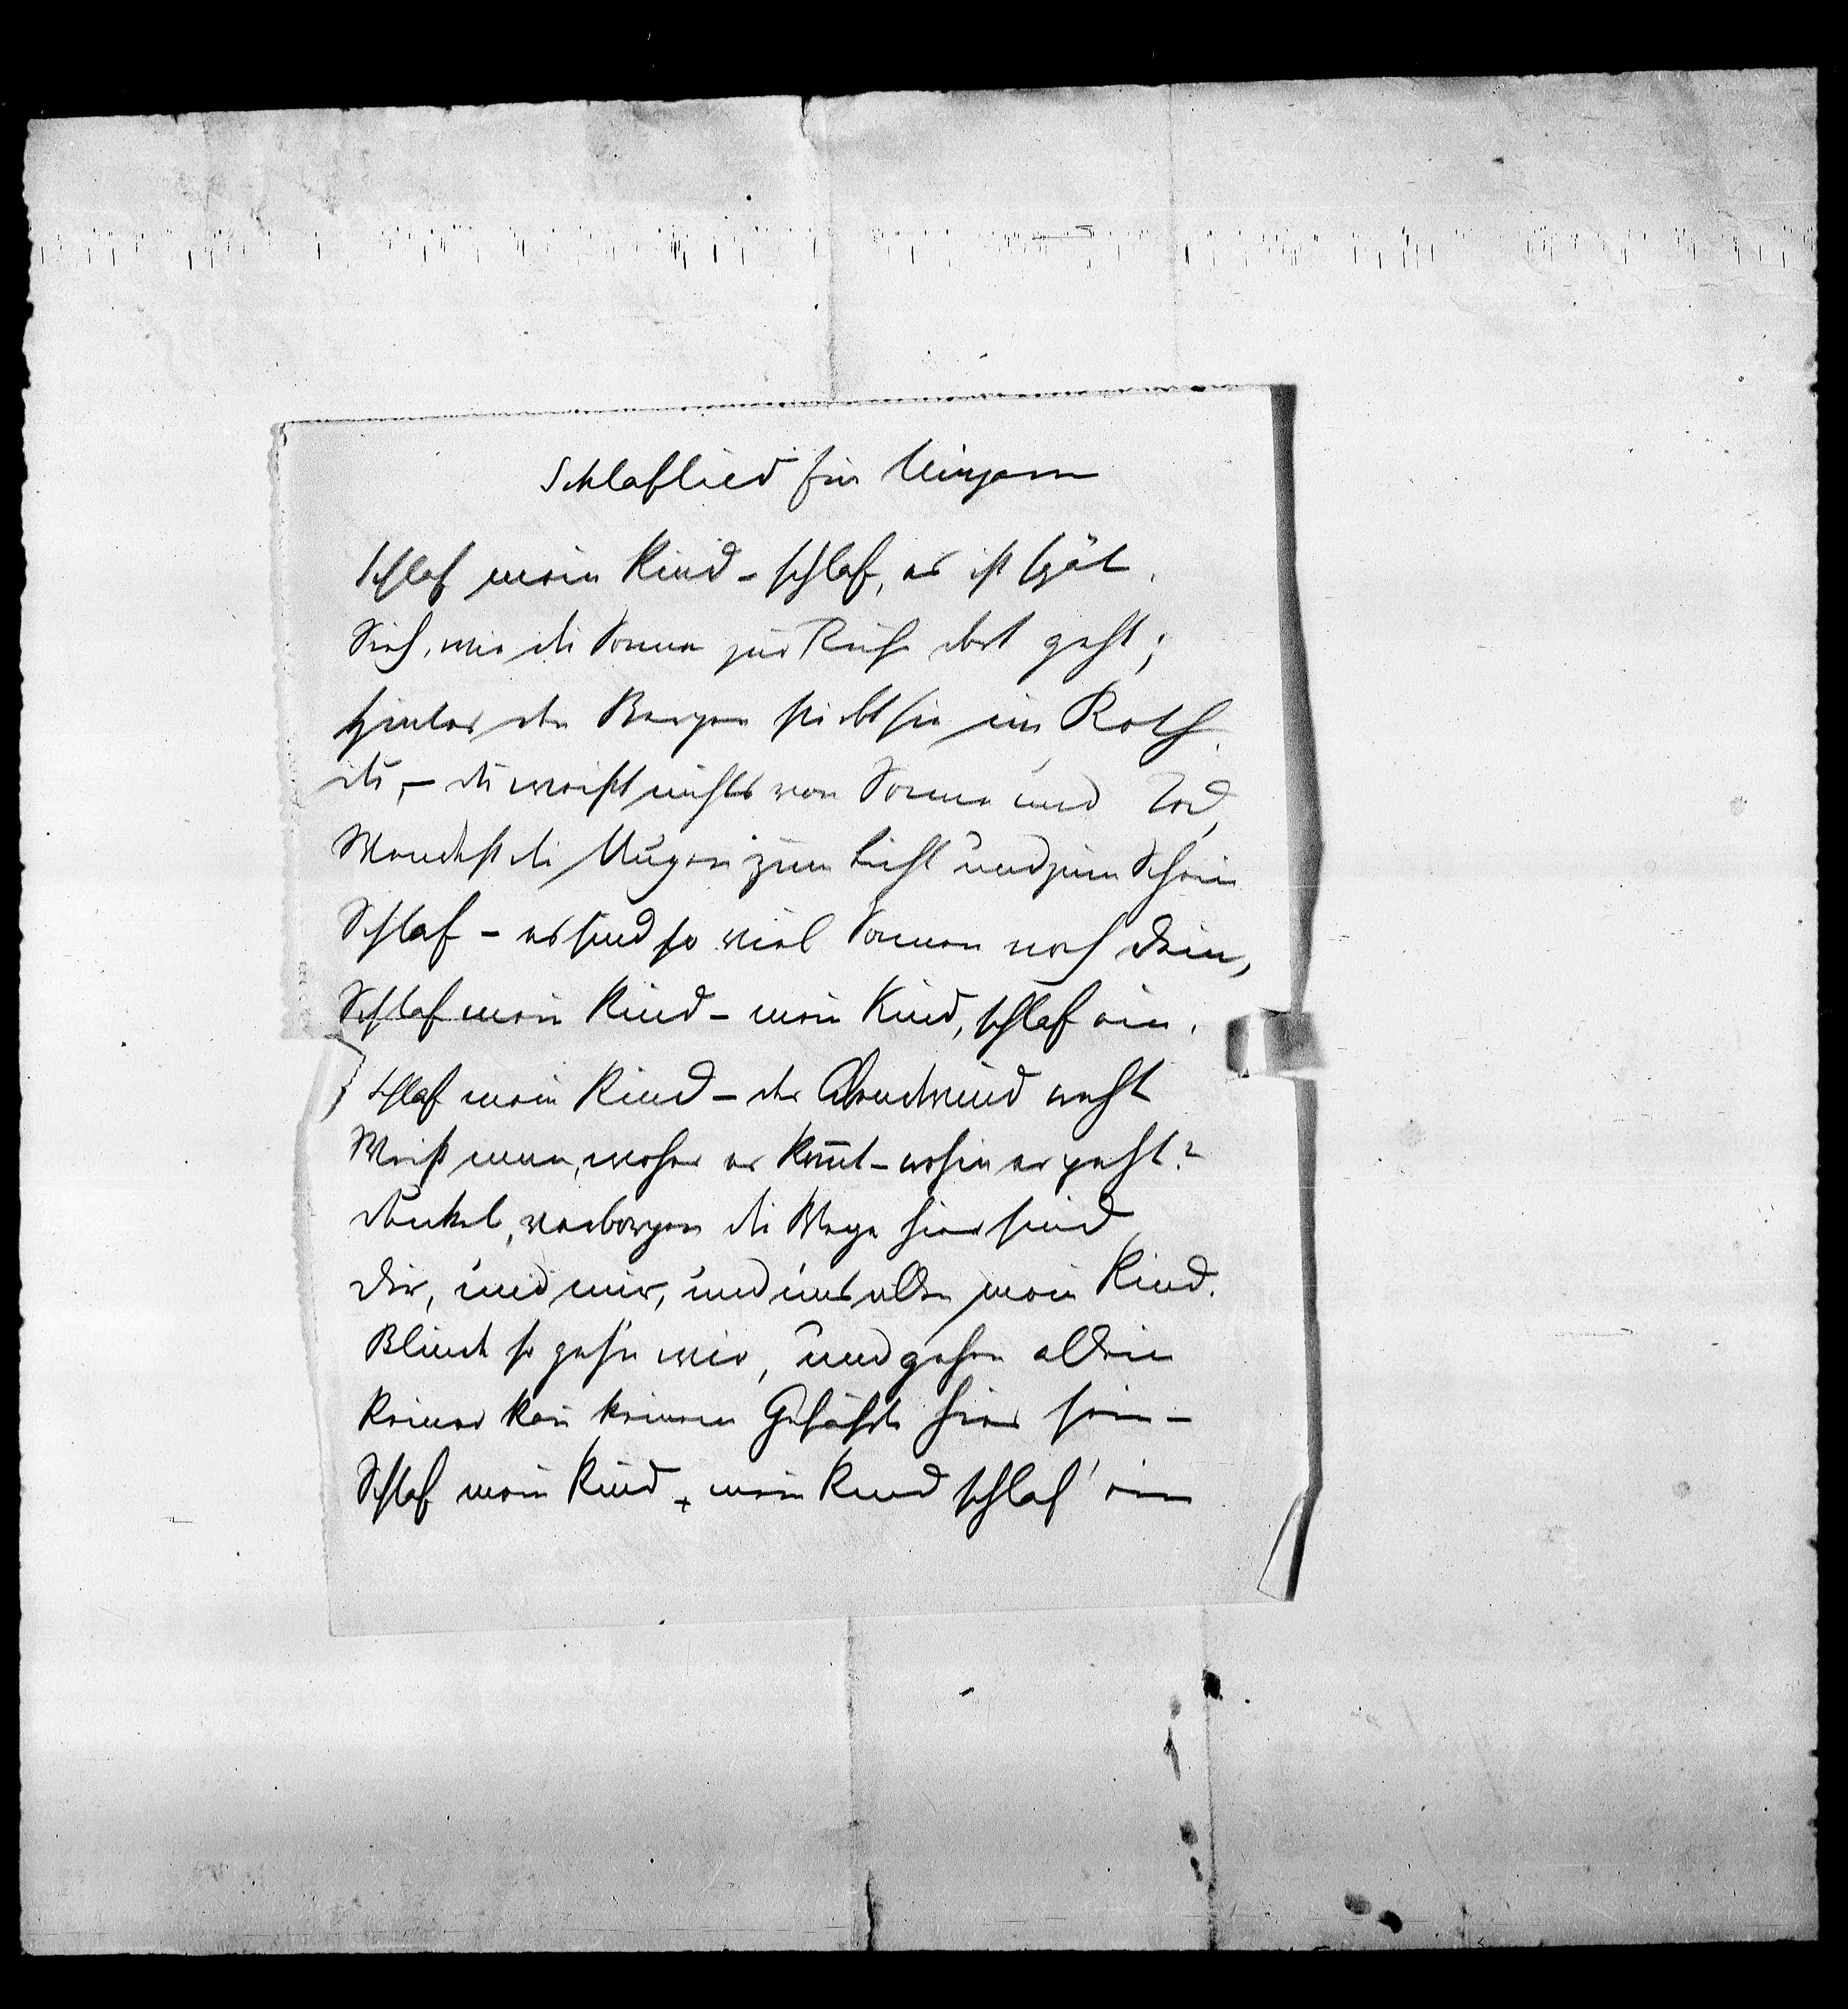 Schlaflied für Mirjam
Schlaf mein Kind – schlaf, es ist spät.
Sieh, wie die Sonne zur Ruhe dort geht;
Hinter den Bergen stirbt sie im Roth.
du, – du weisst nichts von Sonne und Tod,
Wendest die Augen zum Licht und zum Schein
Schlaf – es sind so viel Sonnen noch dein,
Schlaf mein Kind – mein Kind, schlaf ein.
Schlaf mein Kind – der Abendwind weht
Weiss man, woher er kom̅t – wohin er geht?
dunkel, verborgen die Wege hier sind
dir, und mir, und uns allen mein Kind.
Blinde so gehn wir, und gehen allein
Keiner kan keinem Gefährte hier sein –
Schlaf mein Kind – mein Kind schlaf' ein